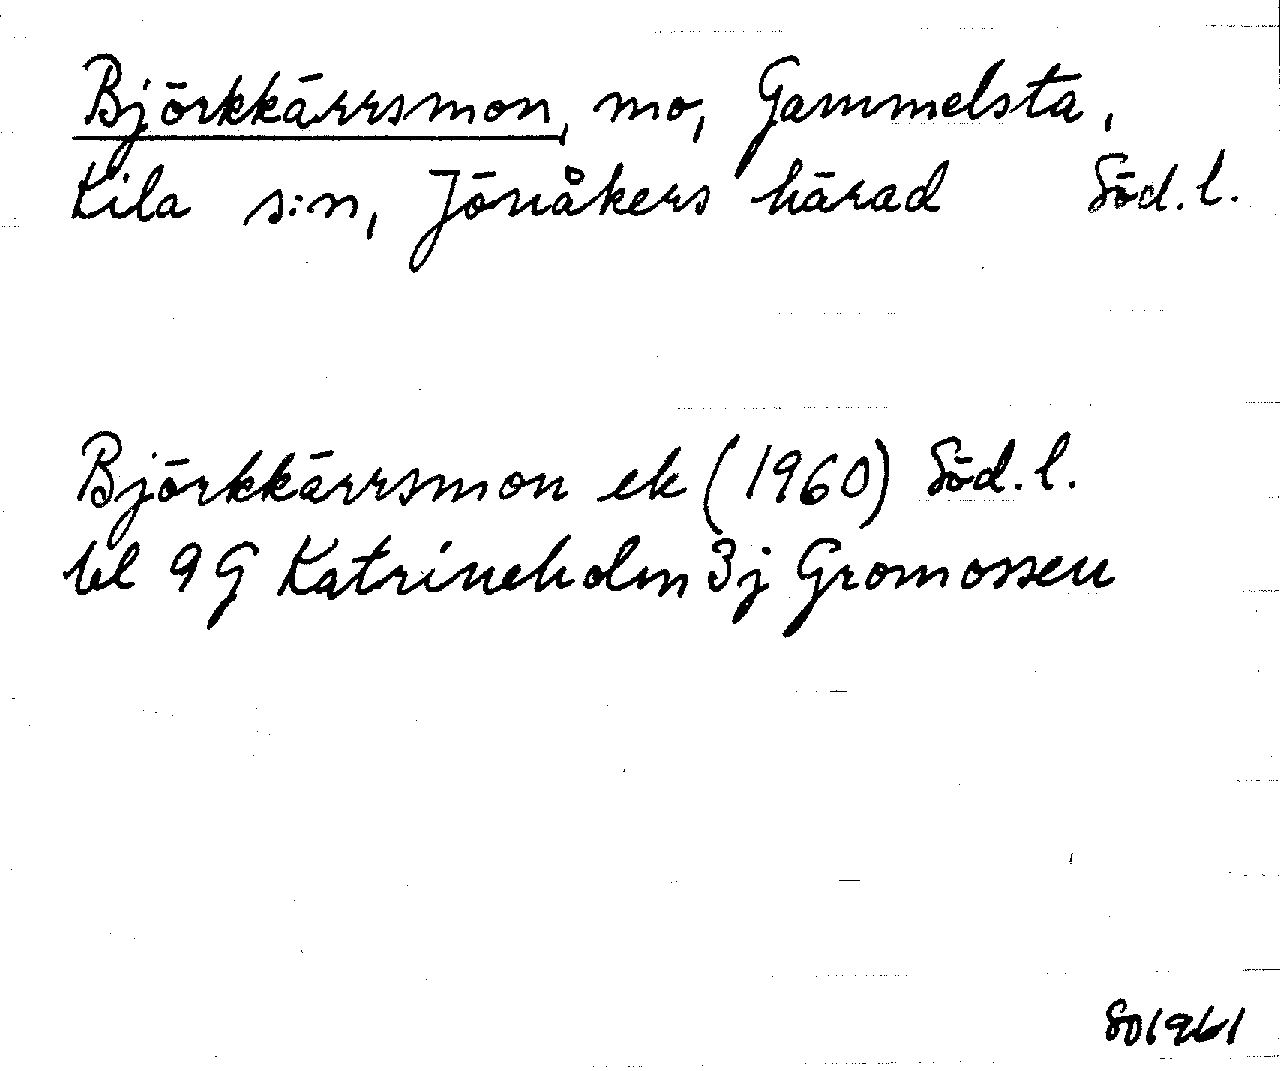 Björkkärrsmon, mo, Gammelsta,
Kila s:n, Jönåkers härad Söd. l.
Björkkärrsmon ek (1960) Söd. l.
bl 9G Katrineholm 3j Gromossen
SO1961